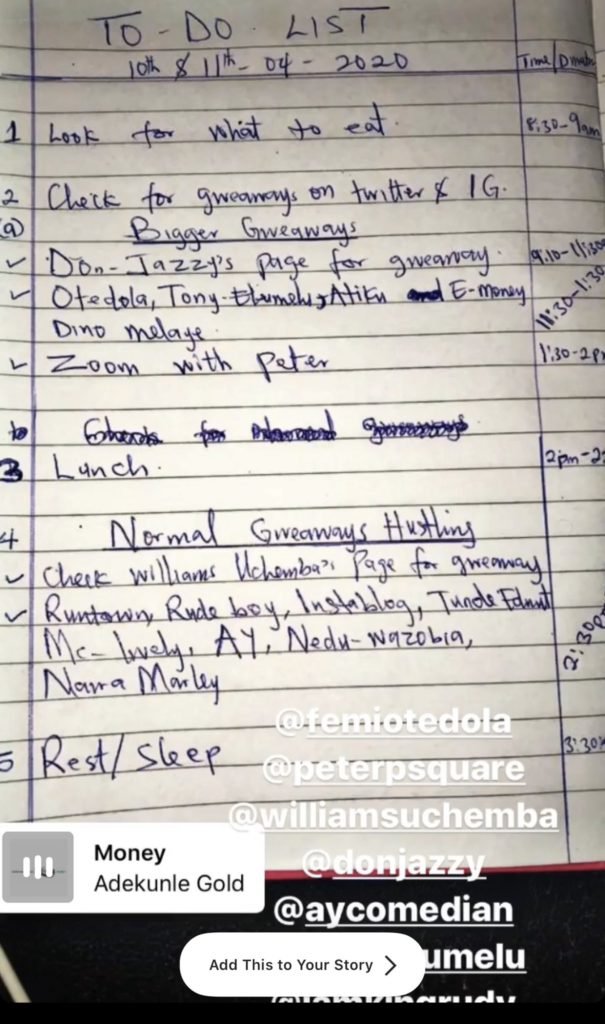 TO-DO LIST
10th & 11th-04-2020
Time/
1 Look for what to eat. 8:30-9am
2 Check for giveaways on twitter & IG.
(a) Bigger Giveaways
✓ Don-Jazzy's page for giveaway. 9.10-11:30
✓ Otedola, Tony-Elumelu, Atiku and E-money 11:30-1:30
Dino melaye.
✓ Zoom with Peter 1:30-2p
b
3 Lunch. 2pm-2
4 Normal Giveaways Hustling
✓ Check Williams Uchemba's Page for giveaway
✓ Runtown, Rude boy, Instablog, Tunde Ednut 2:30
Mc-lively, AY, Nedu-wazobia,
Naira Marley
@femiotedola
5 Rest/Sleep 3:30
@peterpsquare
@williamsuchemba
Money
Adekunle Gold
@donjazzy
@aycomedian
umelu
Add This to Your Story >